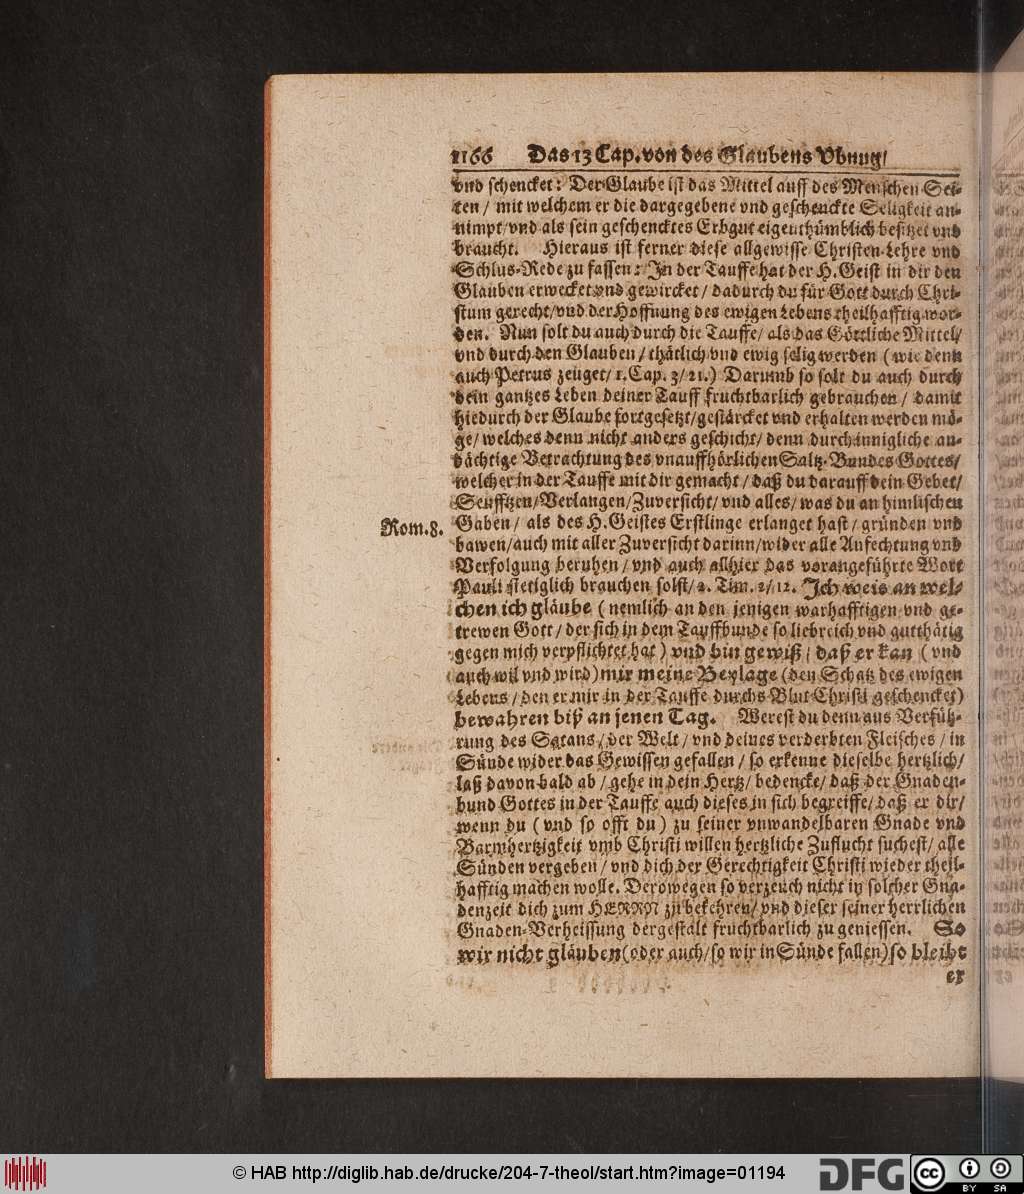 1166 Das 13 Cap. von des Glaubens Vbnug/
vnd schencket: Der Glaube ist das Mittel auff des Menschen Sei-
ten / mit welchem er die dargegebene vnd geschenckte Seligkeit an-
nimpt/vnd als sein geschencktes Erbgut eigenthümblich besitzet vnd
braucht. Hieraus ist ferner diese allgewisse Christen-Lehre vnd
Schlus-Rede zu fassen: In der Tauffe hat der H. Geist in dir den
Glauben erwecket vnd gewircket / dadurch du für Gott durch Chri-
stum gerecht/vnd der Hoffnung des ewigen Lebens theilhafftig wor-
den. Nun solt du auch durch die Tauffe/ als das Göttliche Mittel/
vnd durch den Glauben / thätlich vnd ewig selig werden ( wie denn
auch Petrus zeuget/ 1. Cap. 3/ 21.) Darumb so solt du auch durch
dein gantzes Leben deiner Tauff fruchtbarlich gebrauchen / damit
hiedurch der Glaube fortgesetzt/gestärcket vnd erhalten werden mö-
ge/ welches denn nicht anders geschicht/ denn durch innigliche an-
dächtige Betrachtung des vnauffhörlichen Saltz-Bundes Gottes/
welcher in der Tauffe mit dir gemacht / daß du darauff dein Gebet/
Seufftzen/Verlangen/Zuversicht/ vnd alles/ was du an himlischen
Rom. 8. Gaben / als des H. Geistes Erstlinge erlanget hast / gründen vnd
bawen/auch mit aller Zuversicht darinn/wider alle Anfechtung vnd
Verfolgung beruhen / vnd auch allhier das vorangeführte Wort
Pauli stetiglich brauchen solst/ 2. Tim. 2/ 12. Ich weis an wel-
chen ich gläube ( nemlich an den jenigen warhafftigen vnd ge-
trewen Gott / der sich in dem Tauffbunde so liebreich vnd gutthätig
gegen mich verpflichtet hat ) vnd bin gewiß / daß er kan ( vnd
auch wil vnd wird) mir meine Beylage (den Schatz des ewigen
Lebens / den er mir in der Tauffe durchs Blut Christi geschencket)
bewahren biß an jenen Tag. Werest du denn aus Verfüh-
rung des Satans / der Welt / vnd deines verderbten Fleisches / in
Sünde wider das Gewissen gefallen / so erkenne dieselbe hertzlich/
laß davon bald ab / gehe in dein Hertz/ bedencke/ daß der Gnaden-
bund Gottes in der Tauffe auch dieses in sich begreiffe/ daß er dir/
wenn du ( vnd so offt du ) zu seiner vnwandelbaren Gnade vnd
Barmhertzigkeit vmb Christi willen hertzliche Zuflucht suchest/ alle
Sünden vergeben / vnd dich der Gerechtigkeit Christi wieder theil-
hafftig machen wolle. Derowegen so verzeuch nicht in solcher Gna-
denzeit dich zum HERRN zu bekehren/ vnd dieser seiner herrlichen
Gnaden-Verheissung dergestalt fruchtbarlich zu geniessen. So
wir nicht gläuben (oder auch/so wir in Sünde fallen) so bleibt
er
© HAB http://diglib.hab.de/drucke/204-7-theol/start.htm?image=01194
DFG
cc
BY SA